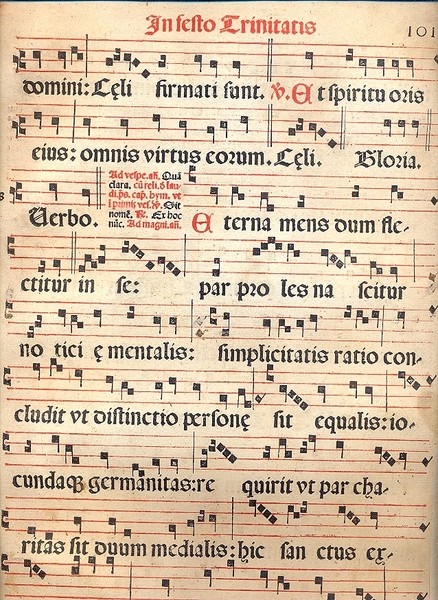 In festo Trinitatis
101
domini: Cęli firmati sunt. ℣. Et spiritu oris
eius: omnis virtus eorum. Cęli. Gloria.
Verbo.
Ad vespe. añ. Quã
clara. cũ reli. ð lau-
nomẽ. ℟. Et hoc
nũc. Ad magni. añ.
Eterna mens dum fle-
ctitur in se: par pro les na scitur
no tici ę mentalis: simplicitatis ratio con-
cludit vt distinctio personę sit equalis: io-
cundaqꝫ germanitas: re quirit vt par cha-
ritas sit duum medialis: hic san ctus ex-